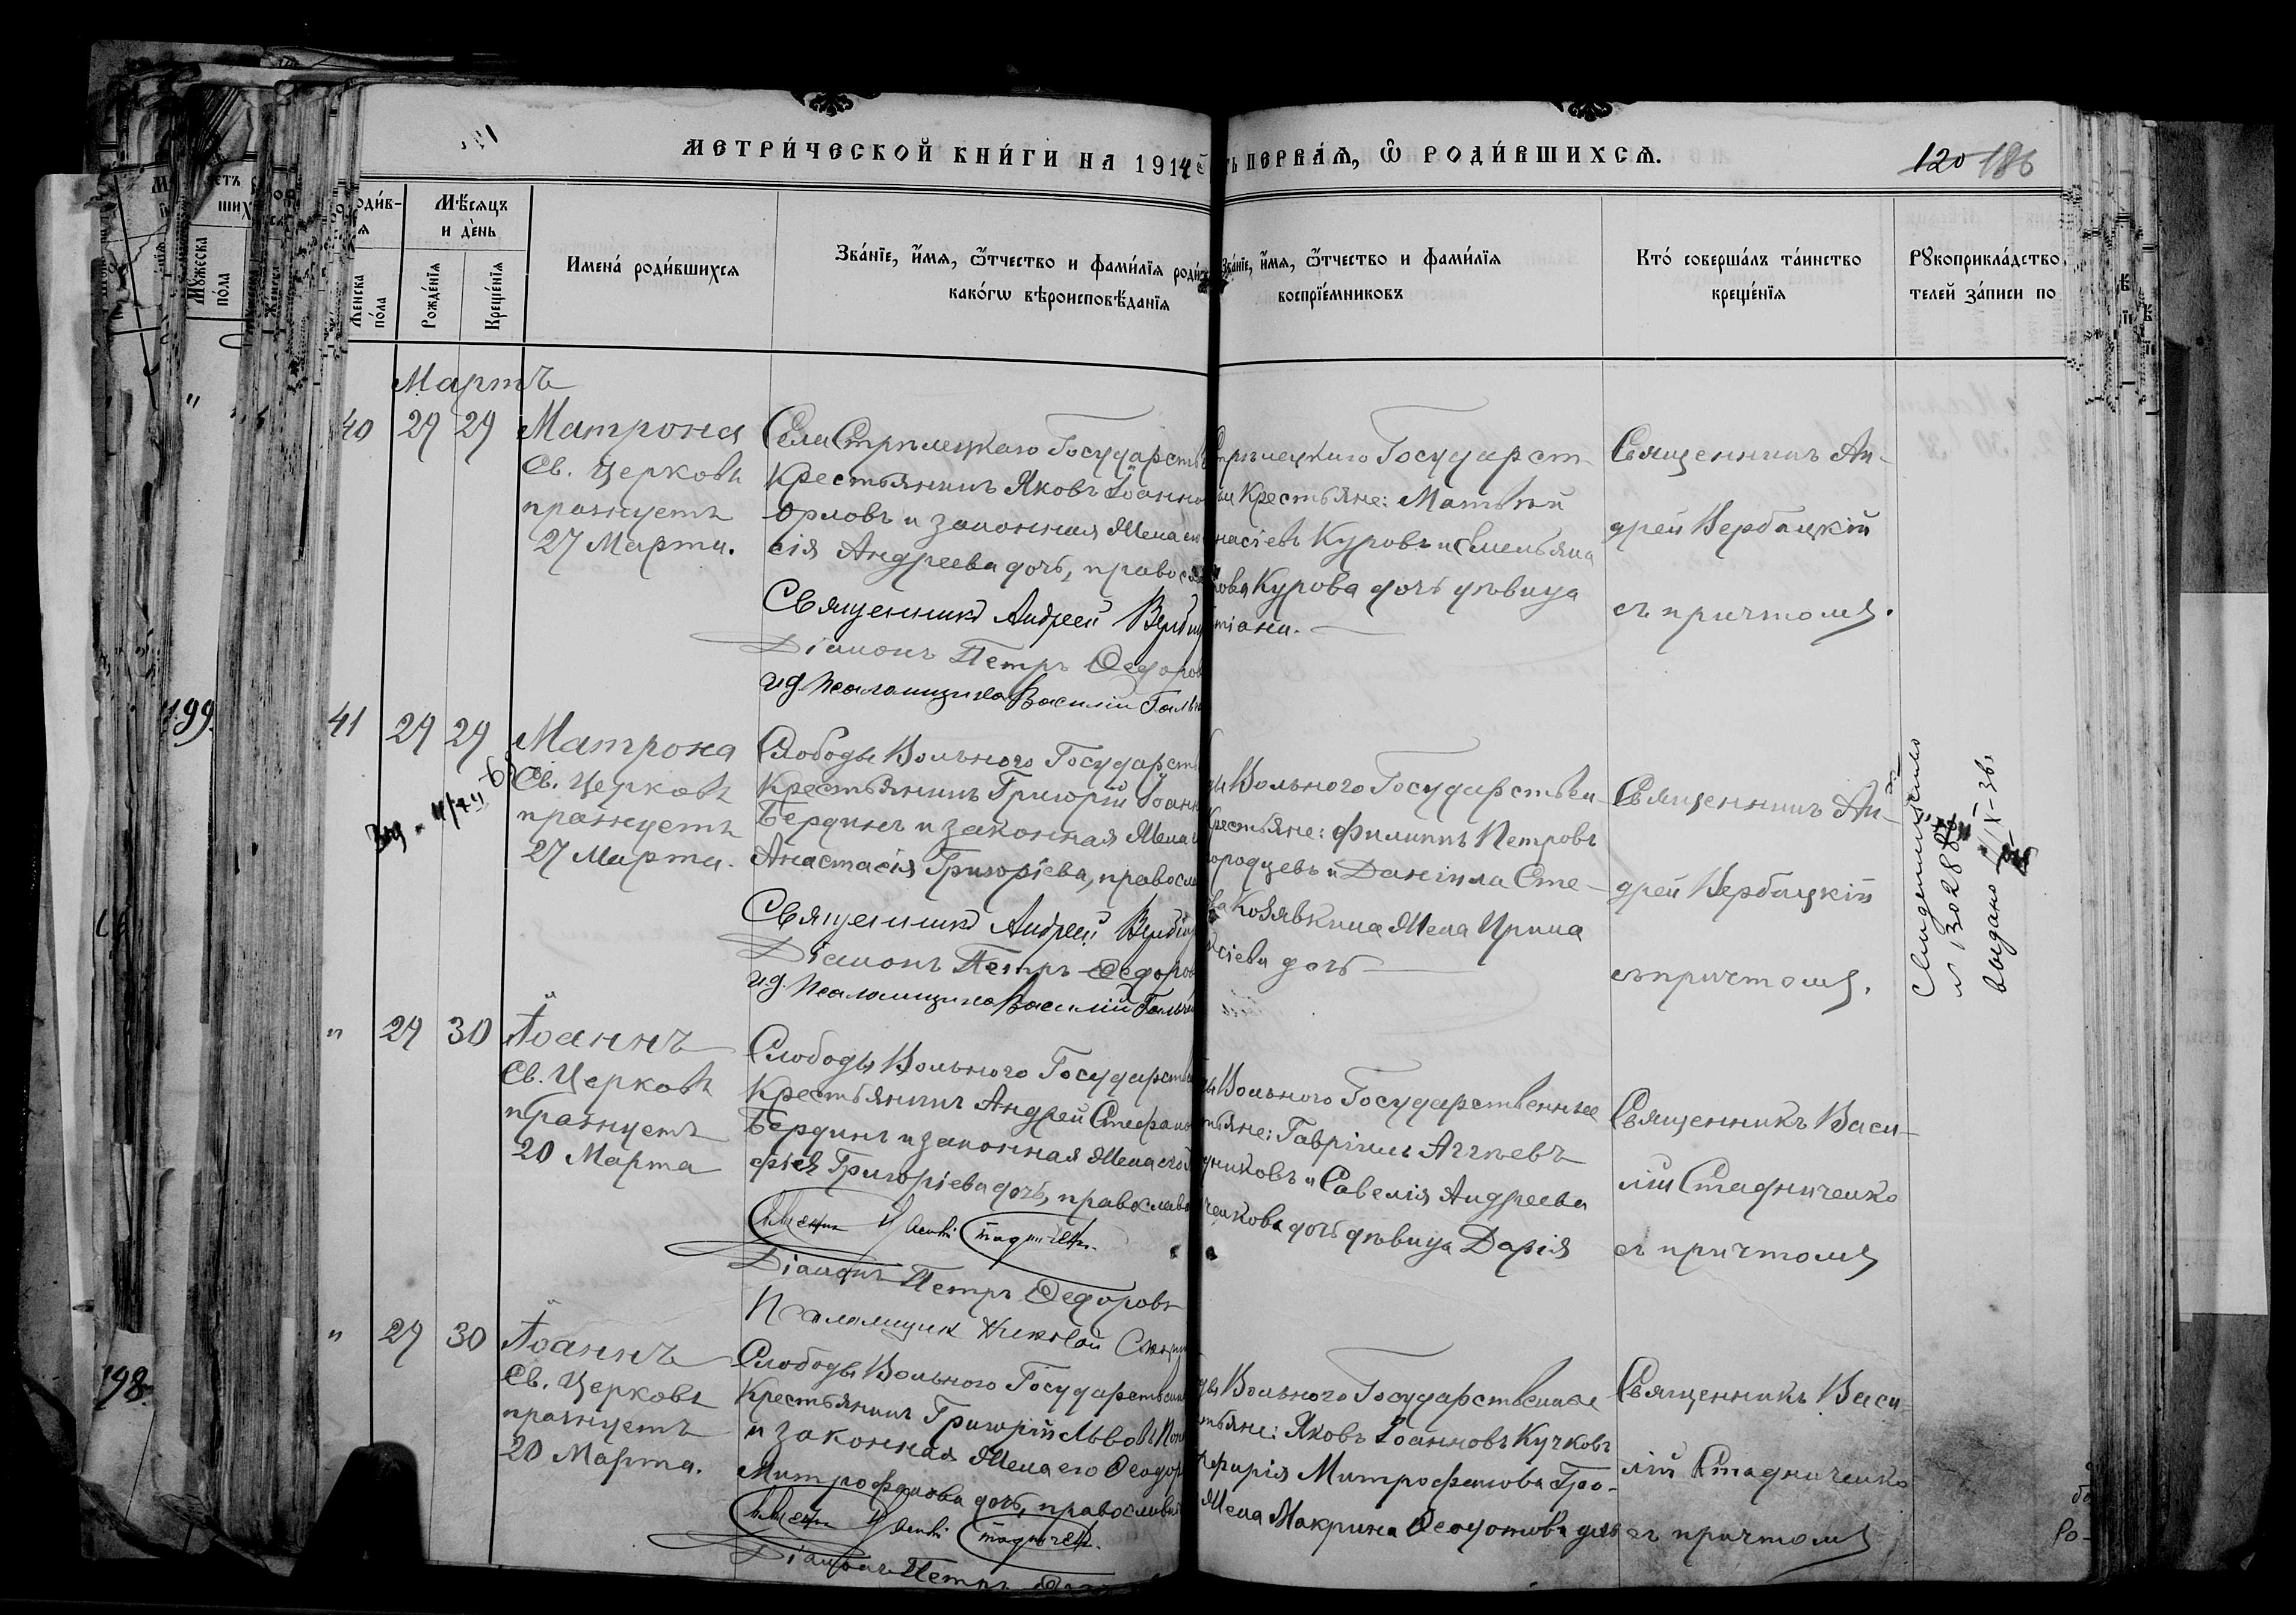 МЕТРИ́ЧЕСКОЙ КНИ́ГИ НА 1914
ПЕРВАѦ, Ѿ РОДИ́ВШИХСѦ.
120 186
Мѣсяцъ
и день
Женска
пола
Рожденія
Крещенія
Имена родившихся
Званіе, имя, отчество и фамилія
какогѡ вѣроисповѣданія
Званіе, имя, отчество и фамилія
воспріемниковъ
Кто совершалъ таинство
крещенія
Рукоприкладство
телей записи по
Мартъ
40 29 29
Матрона
Св. Церковь
празнуетъ
27 Марта.
Села Стрѣлецкаго Государств
Крестьянинъ Яковъ Іоанно
Орловъ и законная Жена
сія Андреева дочь, правосл
Священникъ Андрей Верби
Діаконъ Петръ Ѳедоров
и.д. Псаломщика Василій Галь
трѣлецкаго Государст-
Крестьяне: Матвѣй
насіевъ Куровъ и Емельяна
Курова дочь дѣвица
тіана.
Священникъ Ан-
дрей Вербицкій
съ причтомъ.
41 29 29
Матрона
Св. Церковь
празнуетъ
27 Марта.
Слободы Вольного Государств
Крестьянинъ Григорій Іоанн
Бердинъ и законная Жена
Анастасія Григоріева, правосл
Священникъ Андрей Верби
Діаконъ Петръ Ѳедоров
и.д. Псаломщика Василій Галь
Вольного Государствен-
рестьяне: Филиппъ Петровъ
ородцевъ и Даніила Сте-
ва Козявкина Жена Ирина
сіева дочь
Священникъ Ан-
дрей Вербицкій
съ причтомъ.
выдано
" 29 30
Іоаннъ
Св. Церковь
празнуетъ
20 Марта
Слободы Вольного Государств
Крестьянинъ Андрей Стефано
Бердинъ и законная Жена его
фія Григоріева дочь, православ
Діаконъ Петръ Ѳедоровъ
Псаломщик Николай
Вольного Государственные
тьяне: Гавріилъ Аггѣевъ
никовъ и Савелія Андреева
ченкова дочь дѣвица Дарія
Священникъ Васи-
лій Стадниченко
съ причтомъ
" 29 30
Іоаннъ
Св. Церковь
празнуетъ
20 Марта.
Слободы Вольного Государствен
Крестьянинъ Григорій Львовъ
и законная Жена его Ѳеодор
Митрофанова дочь, православн
Діаконъ Петръ
Вольного Государственные
тьяне: Яковъ Іоанновъ Кучковъ
Порфирія Митрофанова Гро-
Жена Макрина Ѳеодотова дочь
Священникъ Васи-
лій Стадниченко
съ причтомъ
199.
198.